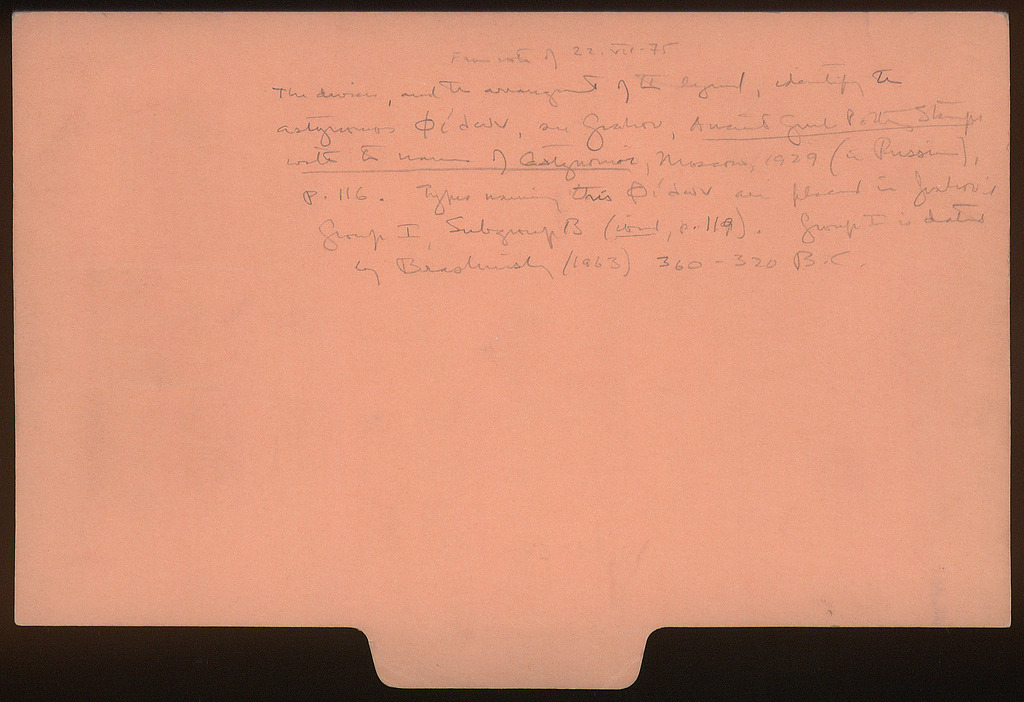 From note of 22.VII.75
The device, and the arrangement of the legend, identify the
astynomos Φίλων, see Grakov, Ancient Greek Pottery Stamps
with the names of Astynomoi, Moscow, 1929 (in Russian),
p. 116. Types naming this Φίλων are placed in Grakov's
Group I, Subgroup B (ibid, p. 119). Group I is dated
by Brashinsky (1963) 360-320 B.C.